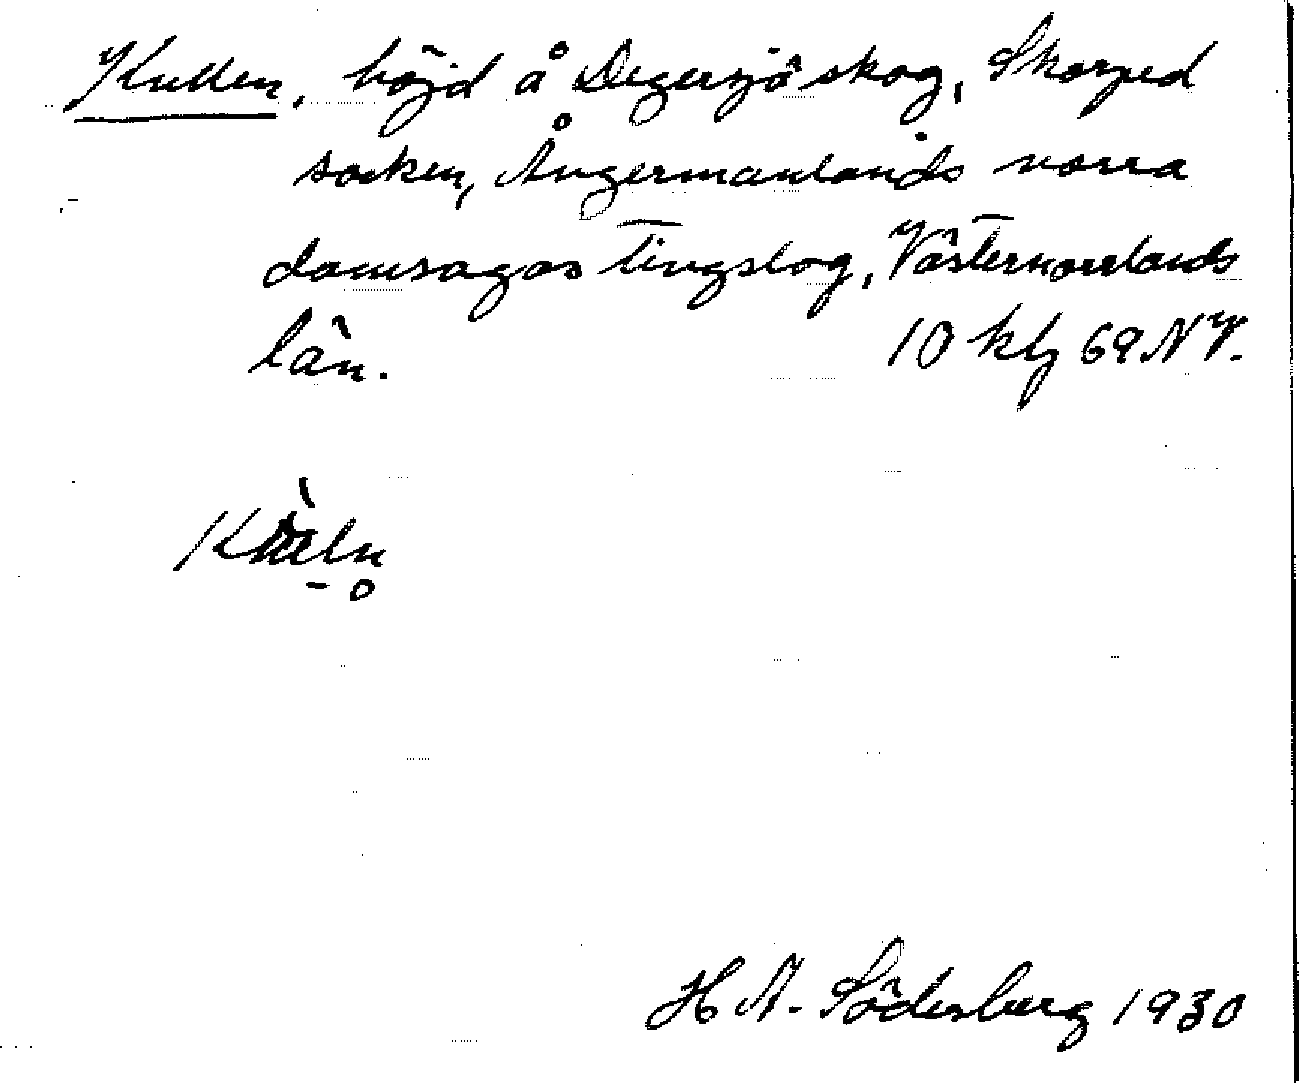 Kullen, höjd å Degersjö skog, Skorped
socken, Ångermanlands norra
domsagas tingslag, Västernorrlands
län. 10 kbl 69 NV.
H A. Söderberg 1930